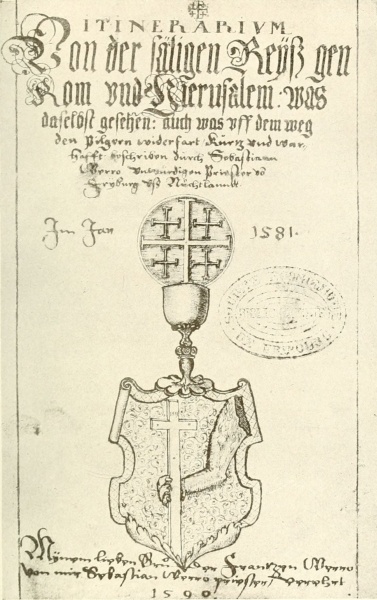 ITINERARIVM
Von der säligen Reyß gen
Rom vnd Hierusalem: was
daselbst gesehen: auch was vff dem weg
den Pilgern widerfart Kurtz vnd war
hafft geschriben durch Sebastianū
Werro vnwurdigen Priester vō
Fryburg vß Nüchtlannd
Im Jar 1581.
Mynem lieben Brůder Frantzen Werro
von mir Sebastian Werro priester verehrt
1590